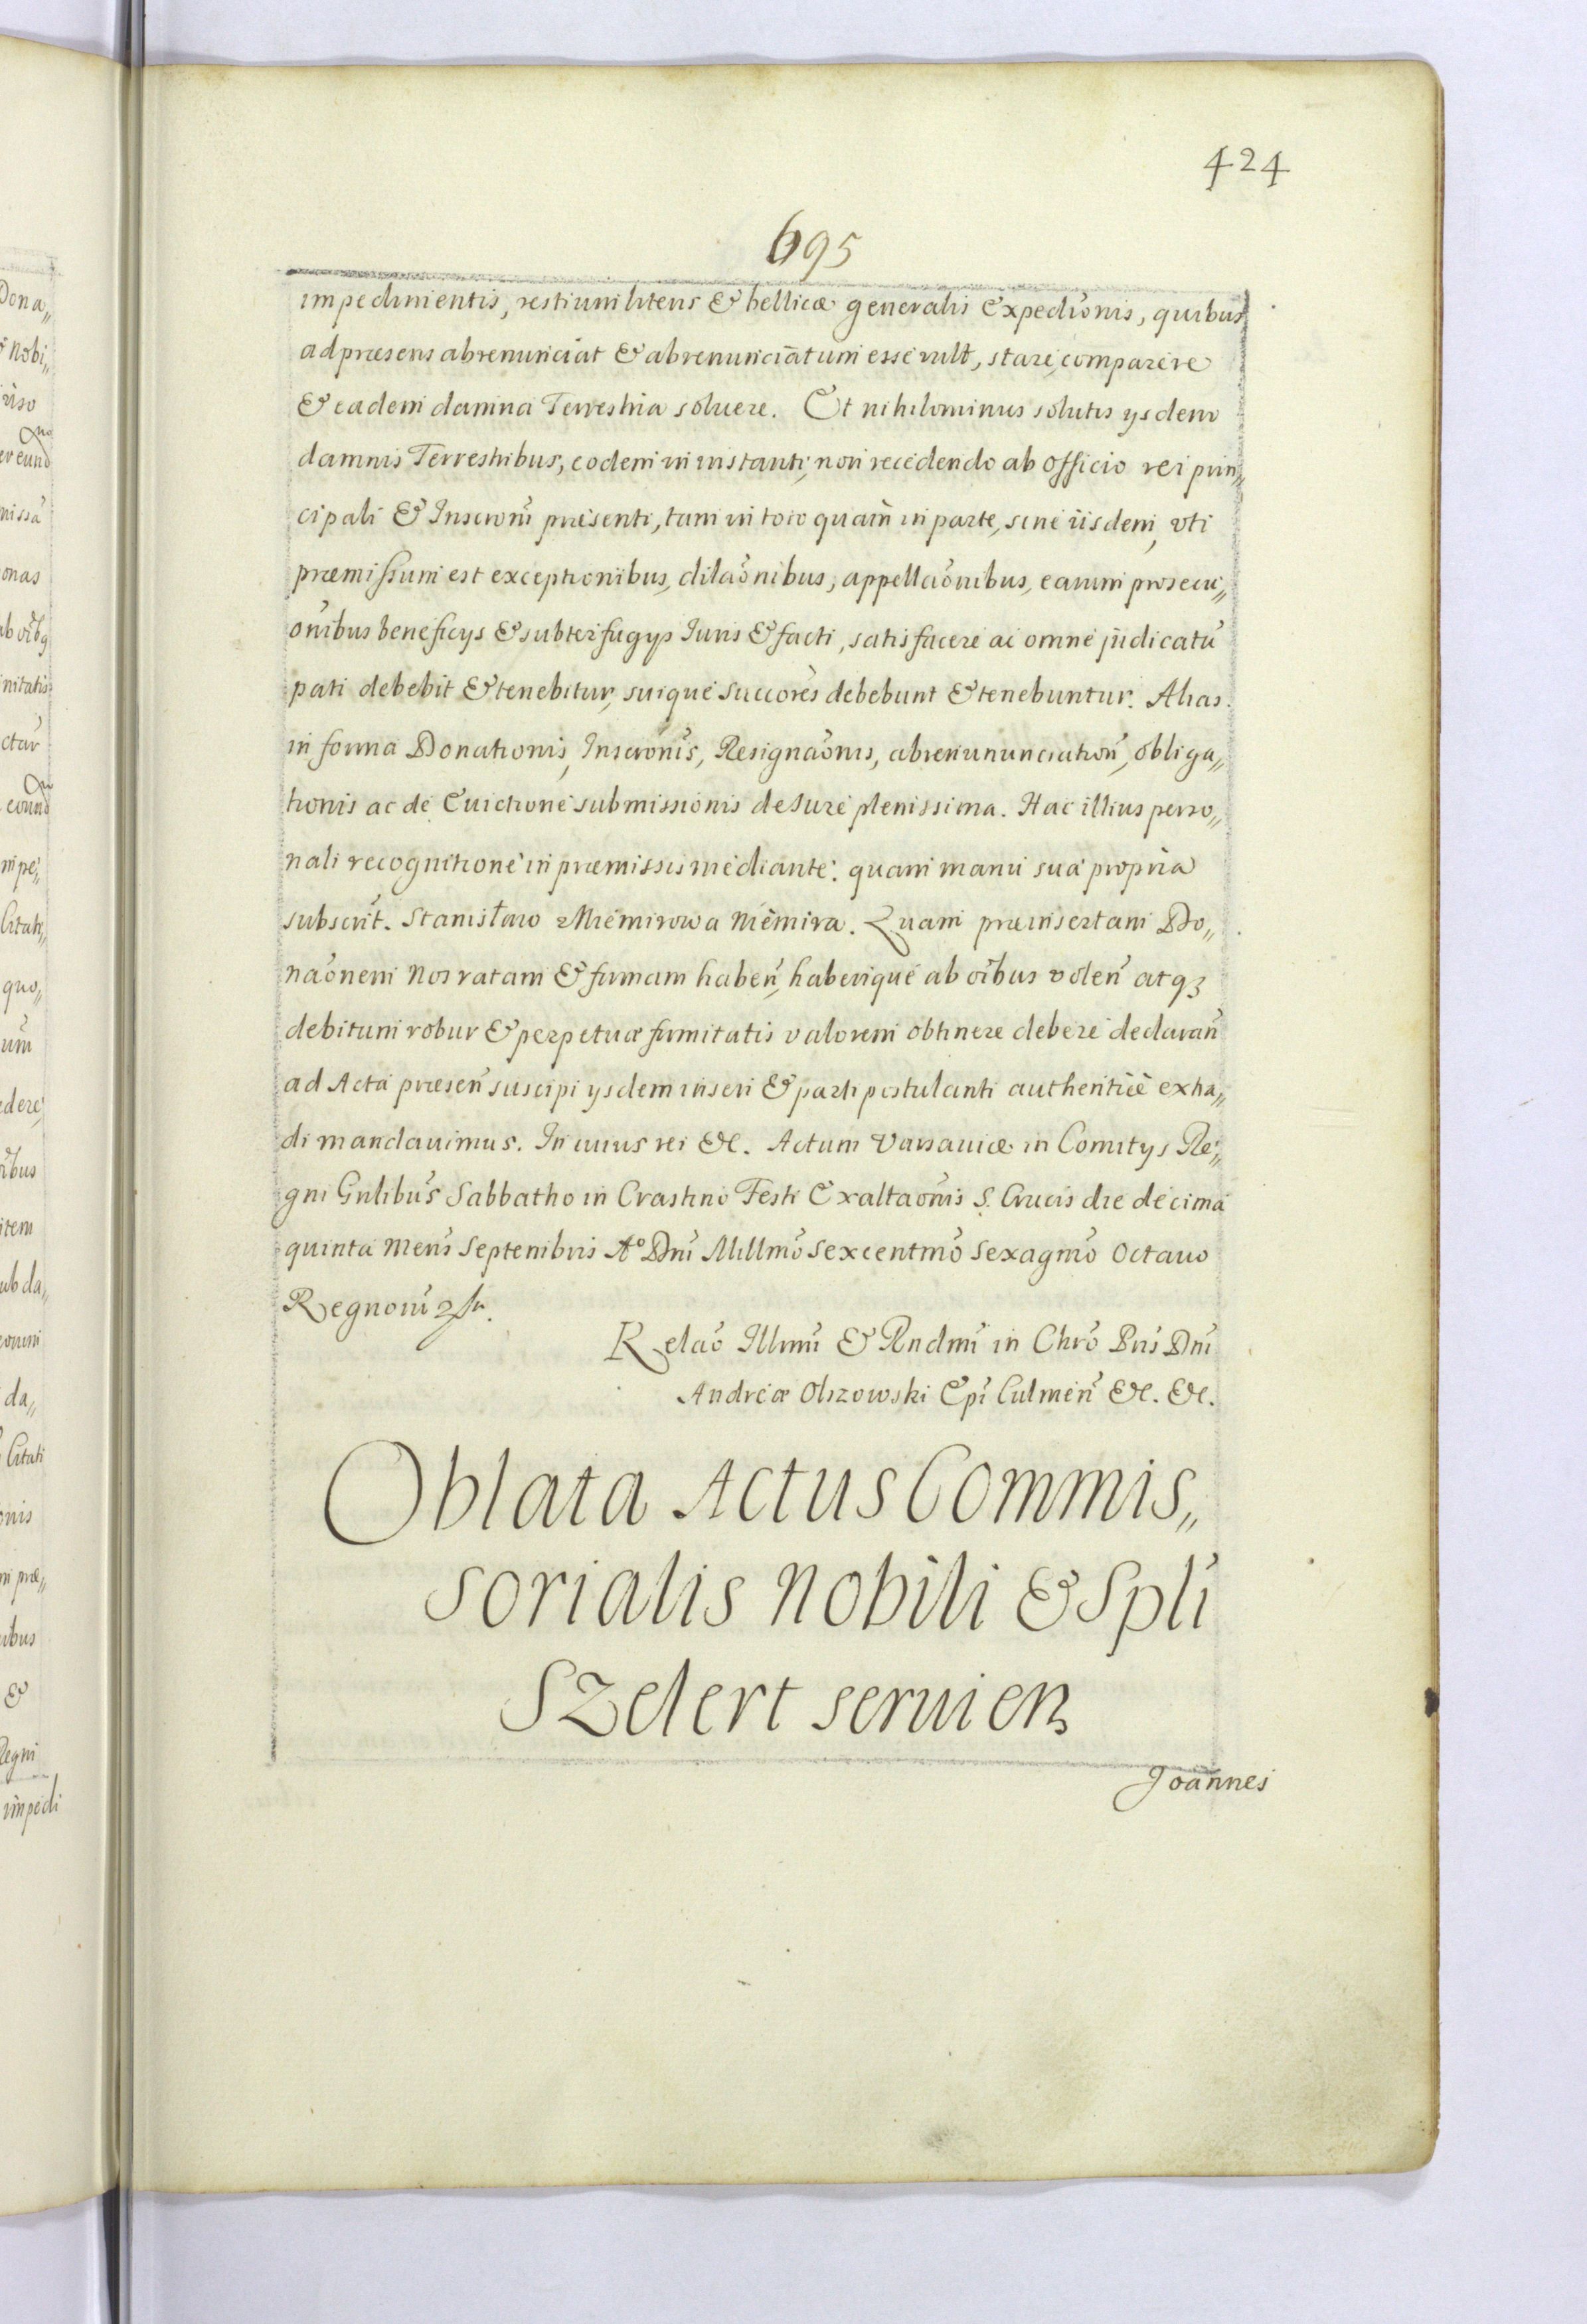 424
695
impedimentis, restium literis & bellicæ generalis Expedi͠onis, quibus
ad præsens abrenunciat & abrenunciatum esse vult, stare, comparere
& eadem damna Terrestria soluere. Et nihilominus solutis ysdem
damnis Terrestribus, eodem in instanti, non recedendo ab officio rei prin„
cipali & Inscr͠oni præsenti, tam in toto quam in parte, sine iisdem, vti
præmissum est exceptionibus, dila͠onibus, appella͠onibus, earum prosecu„
o͠nibus beneficys & subterfugys Iuris & facti, satisfacere ac omne judicatu͠
pati debebit & tenebitur, suique Succo͠res debebunt & tenebuntur. Alias
in forma Donationis, Inscr͠onis, Resigna͠onis, abrenununciation͠, obliga„
tionis ac de Euictione submissionis de Iure plenissima. Hac illius perso„
nali recognitione in præmissis mediante: quam manu sua propria
subscri͠t. Stanisław z Miemirowa Niemira. Quam præinsertam Do„
na͠onem Nos ratam & firmam haben͠, haberique ab oi͠bus volen͠ atq3
debitum robur & perpetuæ firmitatis valorem obtinere debere declaran͠
ad Acta præsen͠ suscipi ysdem inseri & parti postulanti authentice extra„
di mandauimus. In cuius rei &c. Actum Varsauiæ in Comitys Re„
gni Gn͠libus Sabbatho in Crastino Festi Exalta͠onis S. Crucis die decima
quinta Mens͠ Septembris A͠o Dn͠i Millmo͠ Sexcentmo͠ Sexagmo͠ Octauo
Regnoru͠
Rela͠o Illmi͠ & Rndmi͠ in Chro͠ Pri͠s Dn͠i
Andreæ Olszowski Epi͠ Culmen͠ &c. &c.
Oblata Actus Commis„
sorialis Nobili & Spli͠
Szelert seruien
Joannes
Dona„
Nobi„
uiso
missa͠
onas
nitatis
nipe„
litati„
quo„
um͠
dere
ibus
item
ub da„
da„
Citati
onis
m præ„
ibus
&
Regni
impedi